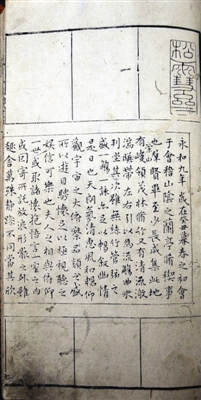 松雪齋
永和九年歲在癸丑暮春之初會
于會稽山陰之蘭亭脩稧事
也群賢畢至少長咸集此地
有崇山峻領茂林脩竹又有清流激
湍暎帶左右引以為流觴曲水
列坐其次雖無絲竹管弦之
盛一觴一詠亦足以暢敘幽情
是日也天朗氣清惠風和暢仰
觀宇宙之大俯察品類之盛
所以遊目騁懷足以極視聽之
娛信可樂也夫人之相與俯仰
一世或取諸懷抱悟言一室之內
或因寄所託放浪形骸之外雖
趣舍萬殊靜躁不同當其欣